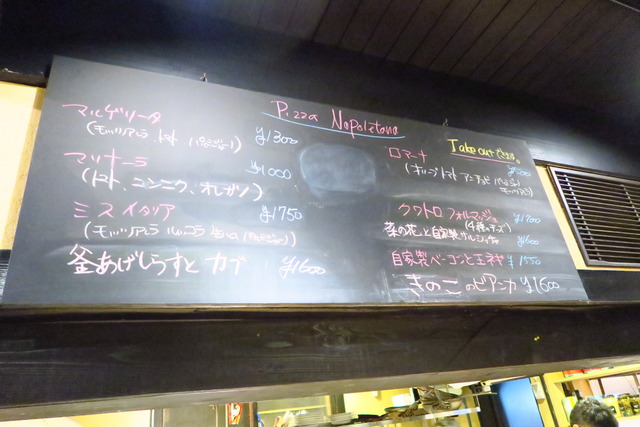 Pizza Napoletana
マルゲリータ ¥1300
(モッツァレラ、トマト
マリナーラ ¥1000
(トマト、ニンニク、オレガノ)
ミスイタリア ¥1750
(モッツァレラ ルッコラ 生ハム
釜あげしらすとカブ ¥1600
Take out できます。
ロマーナ
トマト アンチョビ
モッツァレラ)
クワトロ フォルマッジョ ¥1700
(4種のチーズ)
菜の花と自家製サルシッチャ ¥1600
自家製ベーコンと玉ネギ ¥1550
きのこのビアンカ ¥1600